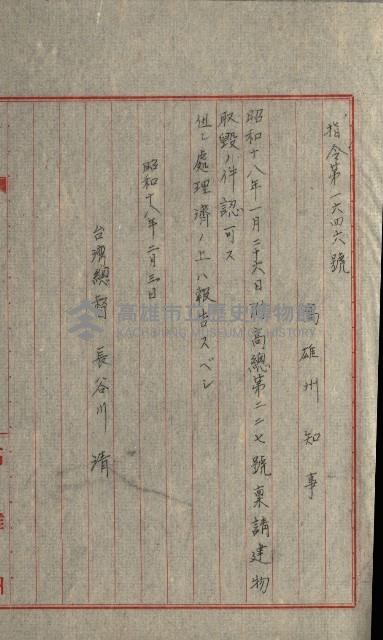 指令第一六四六號
高雄州知事
昭和十八年一月二十六日附高總第二二七號稟請建物
取毀ノ件認可ス
但シ處理濟ノ上ハ報告スベシ
昭和十八年二月三日
台灣總督 長谷川清
高雄市立歷史博物館
KAOHSIUNG MUSEUM OF HISTORY